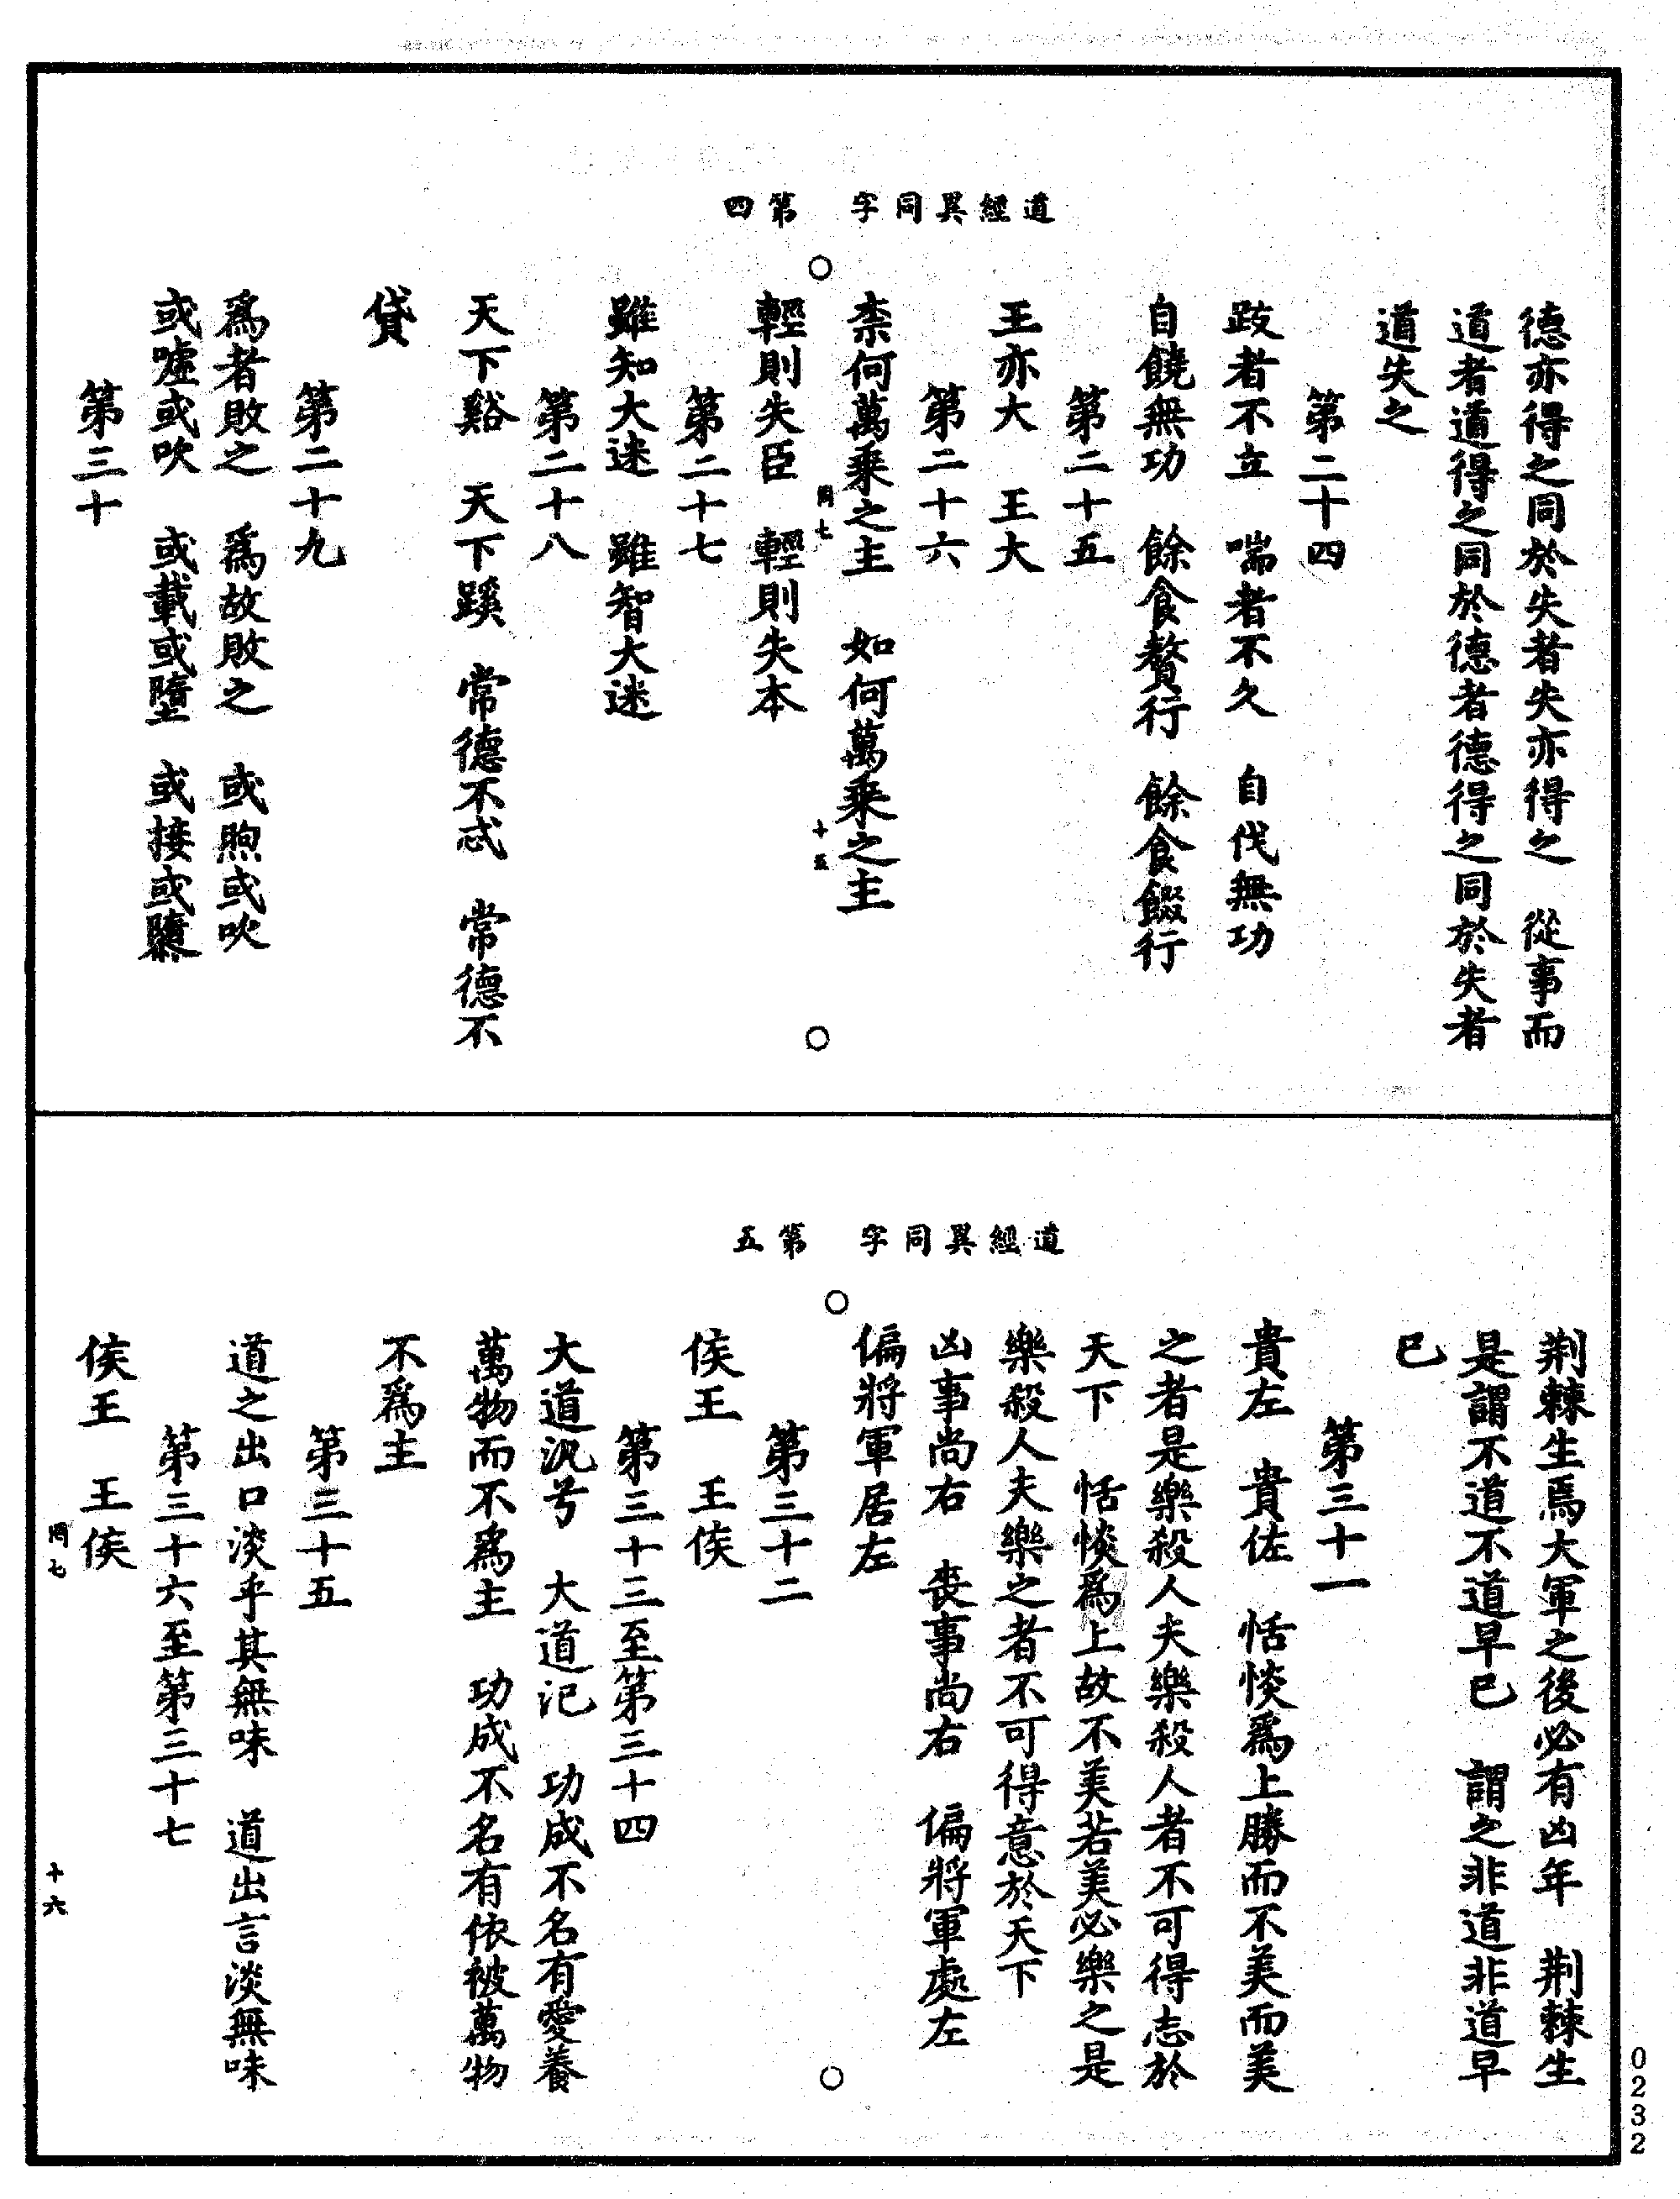 道經異同字　第四
德亦得之同於失者失亦得之　從事而
道者道得之同於德者德得之同於失者
道失之
第二十四
跂者不立　喘者不久　自伐無功
自饒無功　餘食贅行　餘食餟行
第二十五
王亦大　王大
第二十六
柰何萬乘之主　如何萬乘之主
罔七　十五
輕則失臣　輕則失本
第二十七
雖知大迷　雖智大迷
第二十八
天下谿　天下蹊　常德不忒　常德不
貸
第二十九
爲者敗之　爲故敗之　或煦或吹
或噓或吹　或載或墮　或接或隳
第三十
道經異同字　第五
荆棘生焉大軍之後必有凶年　荆棘生
是謂不道不道早已　謂之非道非道早
已
第三十一
貴左　貴佐　恬惔爲上勝而不美而美
之者是樂殺人夫樂殺人者不可得志於
天下　恬惔爲上故不美若美必樂之是
樂殺人夫樂之者不可得意於天下
凶事尚右　喪事尚右　偏將軍處左
偏將軍居左
第三十二
侯王　王侯
第三十三至第三十四
大道汎兮　大道汜　功成不名有愛養
萬物而不爲主　功成不名有依被萬物
不爲主
第三十五
道之出口淡乎其無味　道出言淡無味
第三十六至第三十七
侯王　王侯
罔七　十六
0232